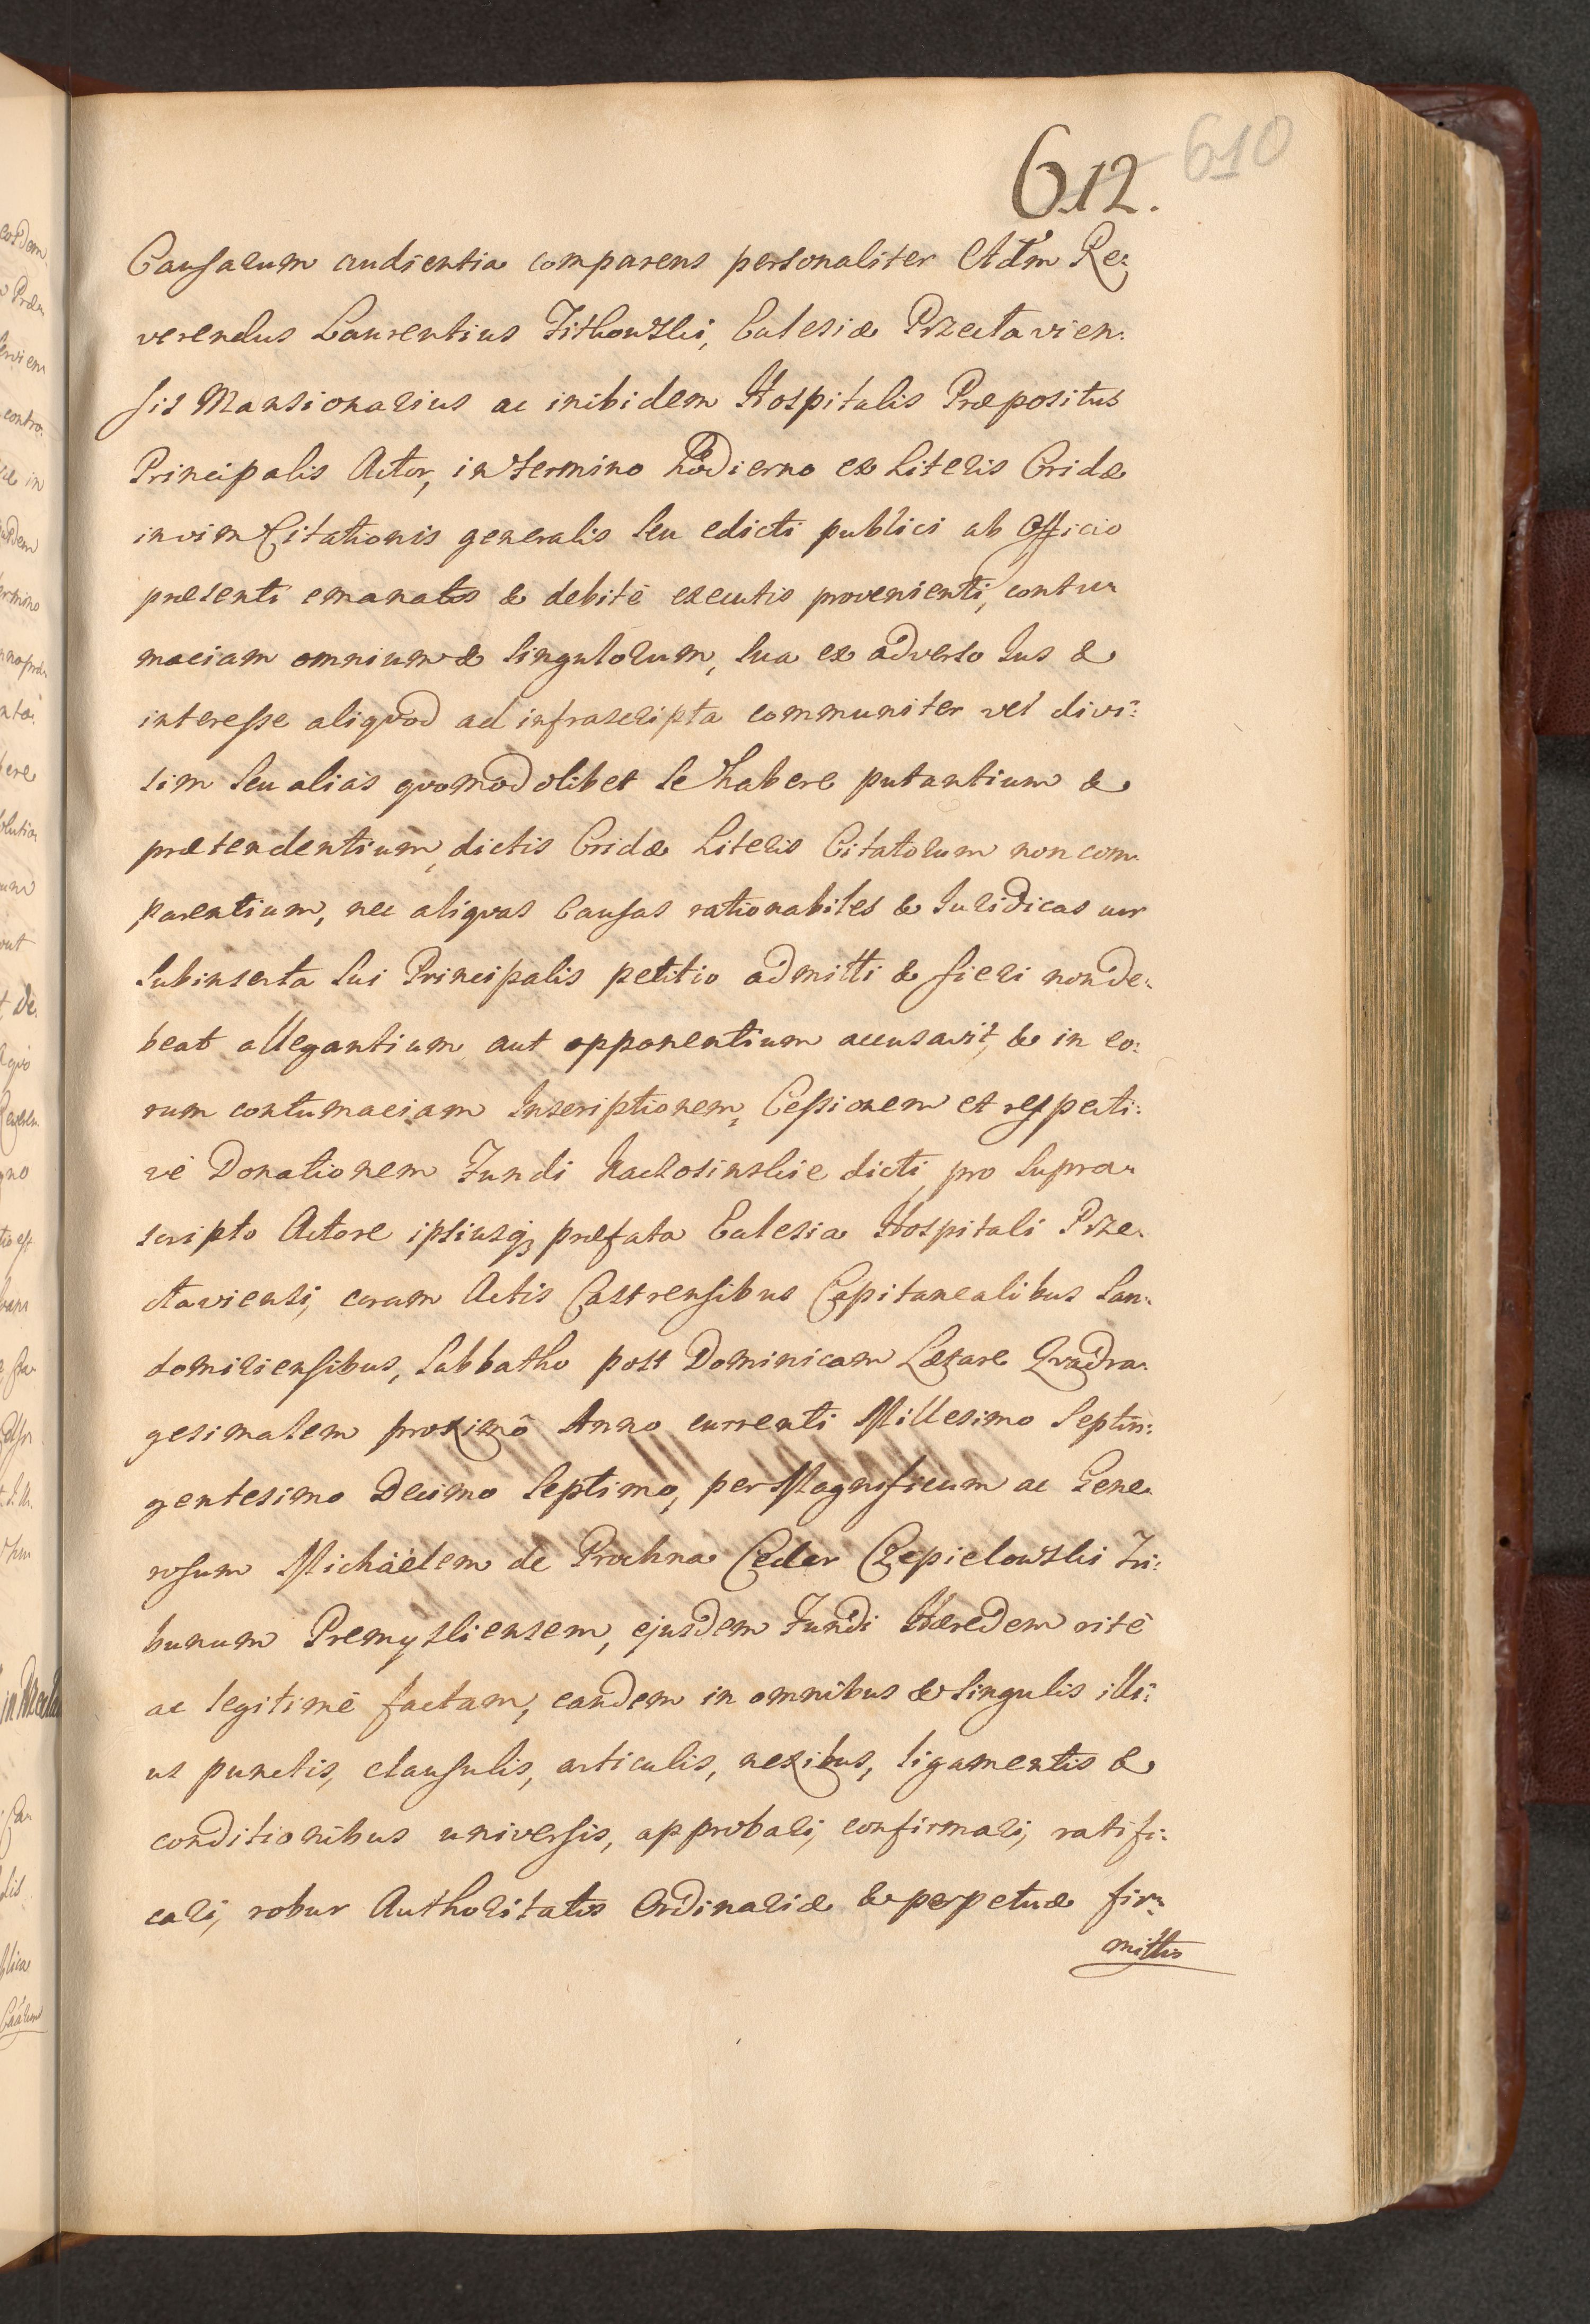 612. 610
Causarum audientia comparens personaliter Adm Re:
verendus Laurentius Fitkowski, Eclesiæ Przectavien:
sis Mansionarius ac inibidem Hospitalis Præpositus
Principalis Actor, in termino hodierno ex Literis Cridæ
in vim Citationis generalis seu edicti publici ab Officio
præsenti emanatis & debitè executis provenienti, contu:
maciam omnium & singulorum, sua ex adverso Jus &
interesse aliquod ad infrascripta communiter vel divi:
sim seu alias quomodolibet se habere putantium &
prætendentium, dictis Cridæ Literis Citatorum non com:
parentium, nec aliquas Causas rationabiles & Juridicas cur
subinserta sui Principalis petitio admitti & fieri non de:
beat allegantium aut opponentium accusavit, & in eo:
rum contumaciam Inscriptionem, Cessionem et respecti:
vè Donationem Fundi dicti, pro supra:
scripto Actore ipsiusq3 præfata Eclesia Hospitali Prze:
ctaviensi, coram Actis Castrensibus Capitanealibus San:
domiriensibus, Sabbatho post Dominicam Lætare Quadra:
gesimalem proximè Anno currenti Millesimo Septin:
gentesimo Decimo Septimo, per Magnificum ac Gene:
rosum Michäelem de Prochna Ceder Czepielowski Tri:
bunum Premysliensem, ejusdem Fundi Hæredem ritè
ac legitimè factam, eandem in omnibus & singulis illi:
us punctis, clausulis, articulis, nexibus, ligamentis &
conditionibus universis, approbari, confirmari, ratifi:
cari, robur Authoritatis Ordinariæ & perpetuæ fir:
mittis